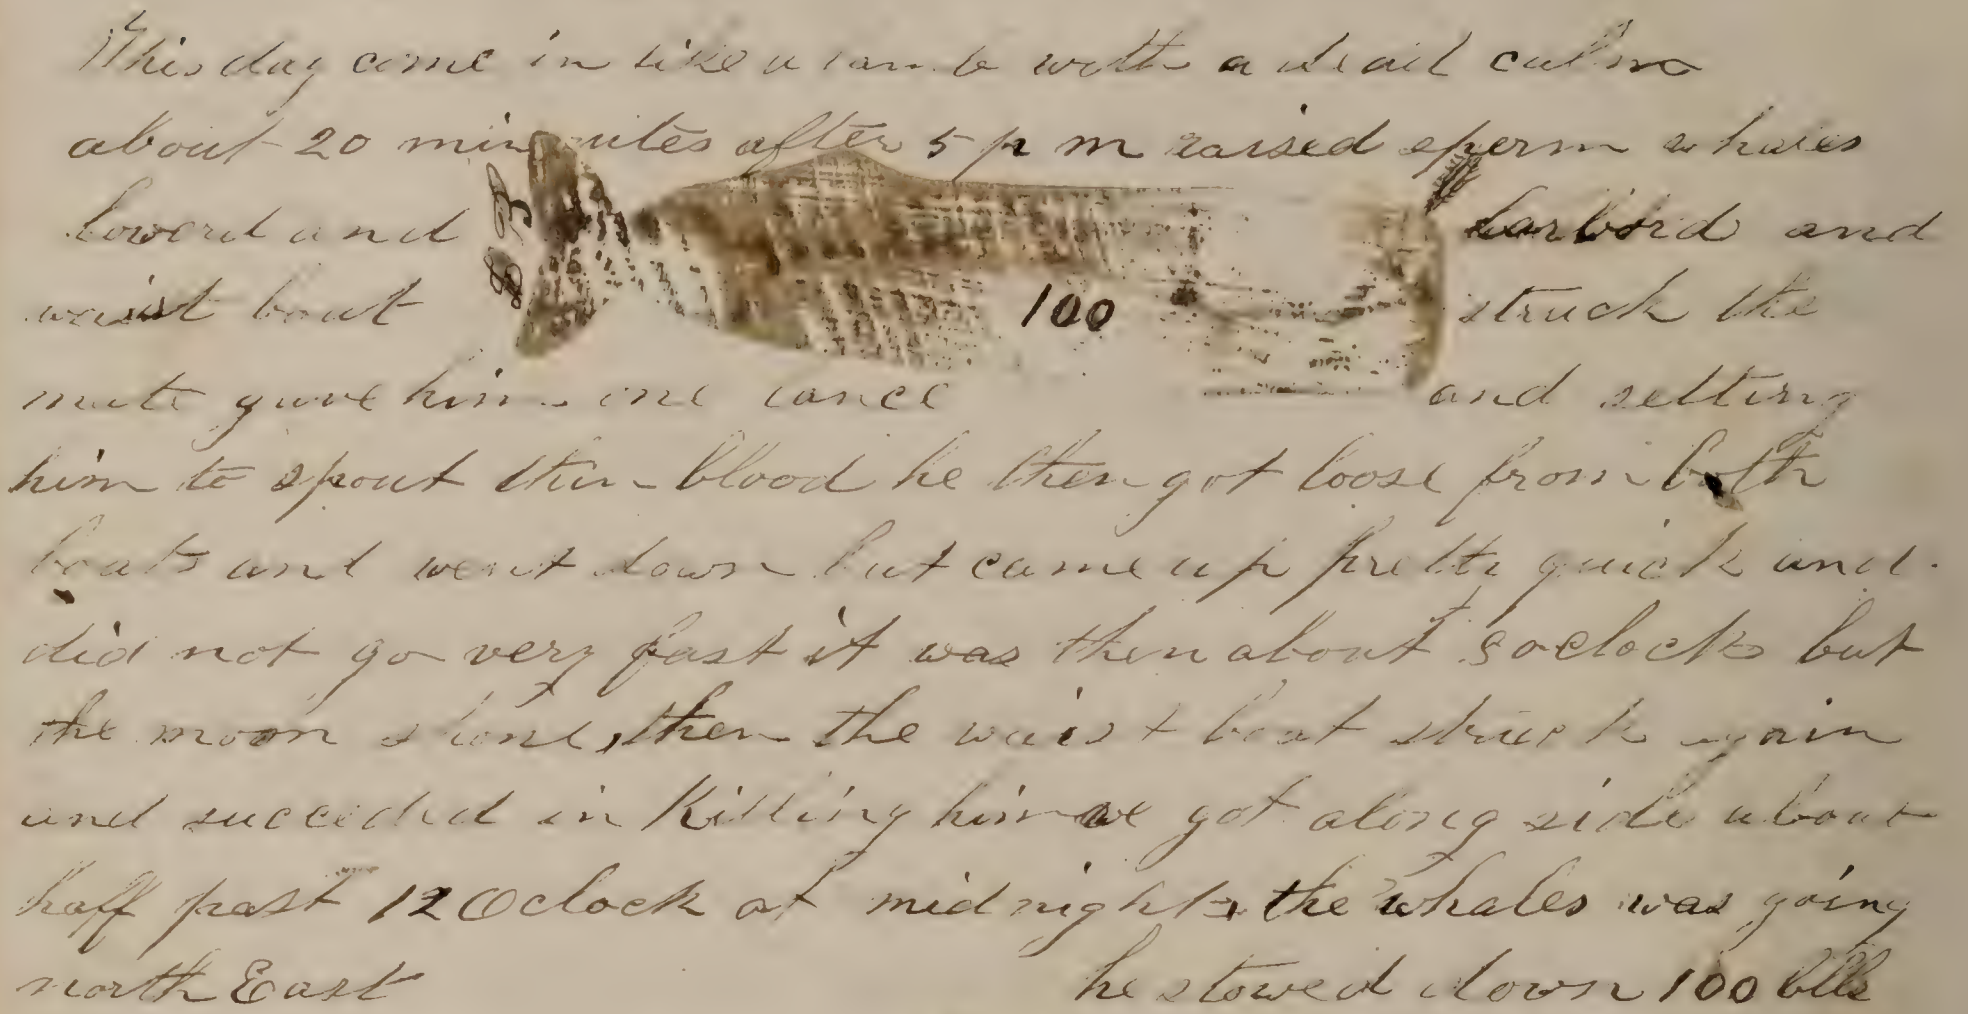 This day come in like a lamb with a dead calm
about 20 minuites after 5 p m raised sperm whales
lowerd and larbord and
waist boat 100 struck the
mate gave him one lance and setting
him to spout thin blood he then got loose from both
boats and went down but came up pretty quick and
did not go very fast it was then about oclock but
the moon shone, then the waist boat struck again
and succeeded in Killing him we got along side about
haff past 12 Oclock at midnight, the whales was going
north East he stowed down 100 bbls